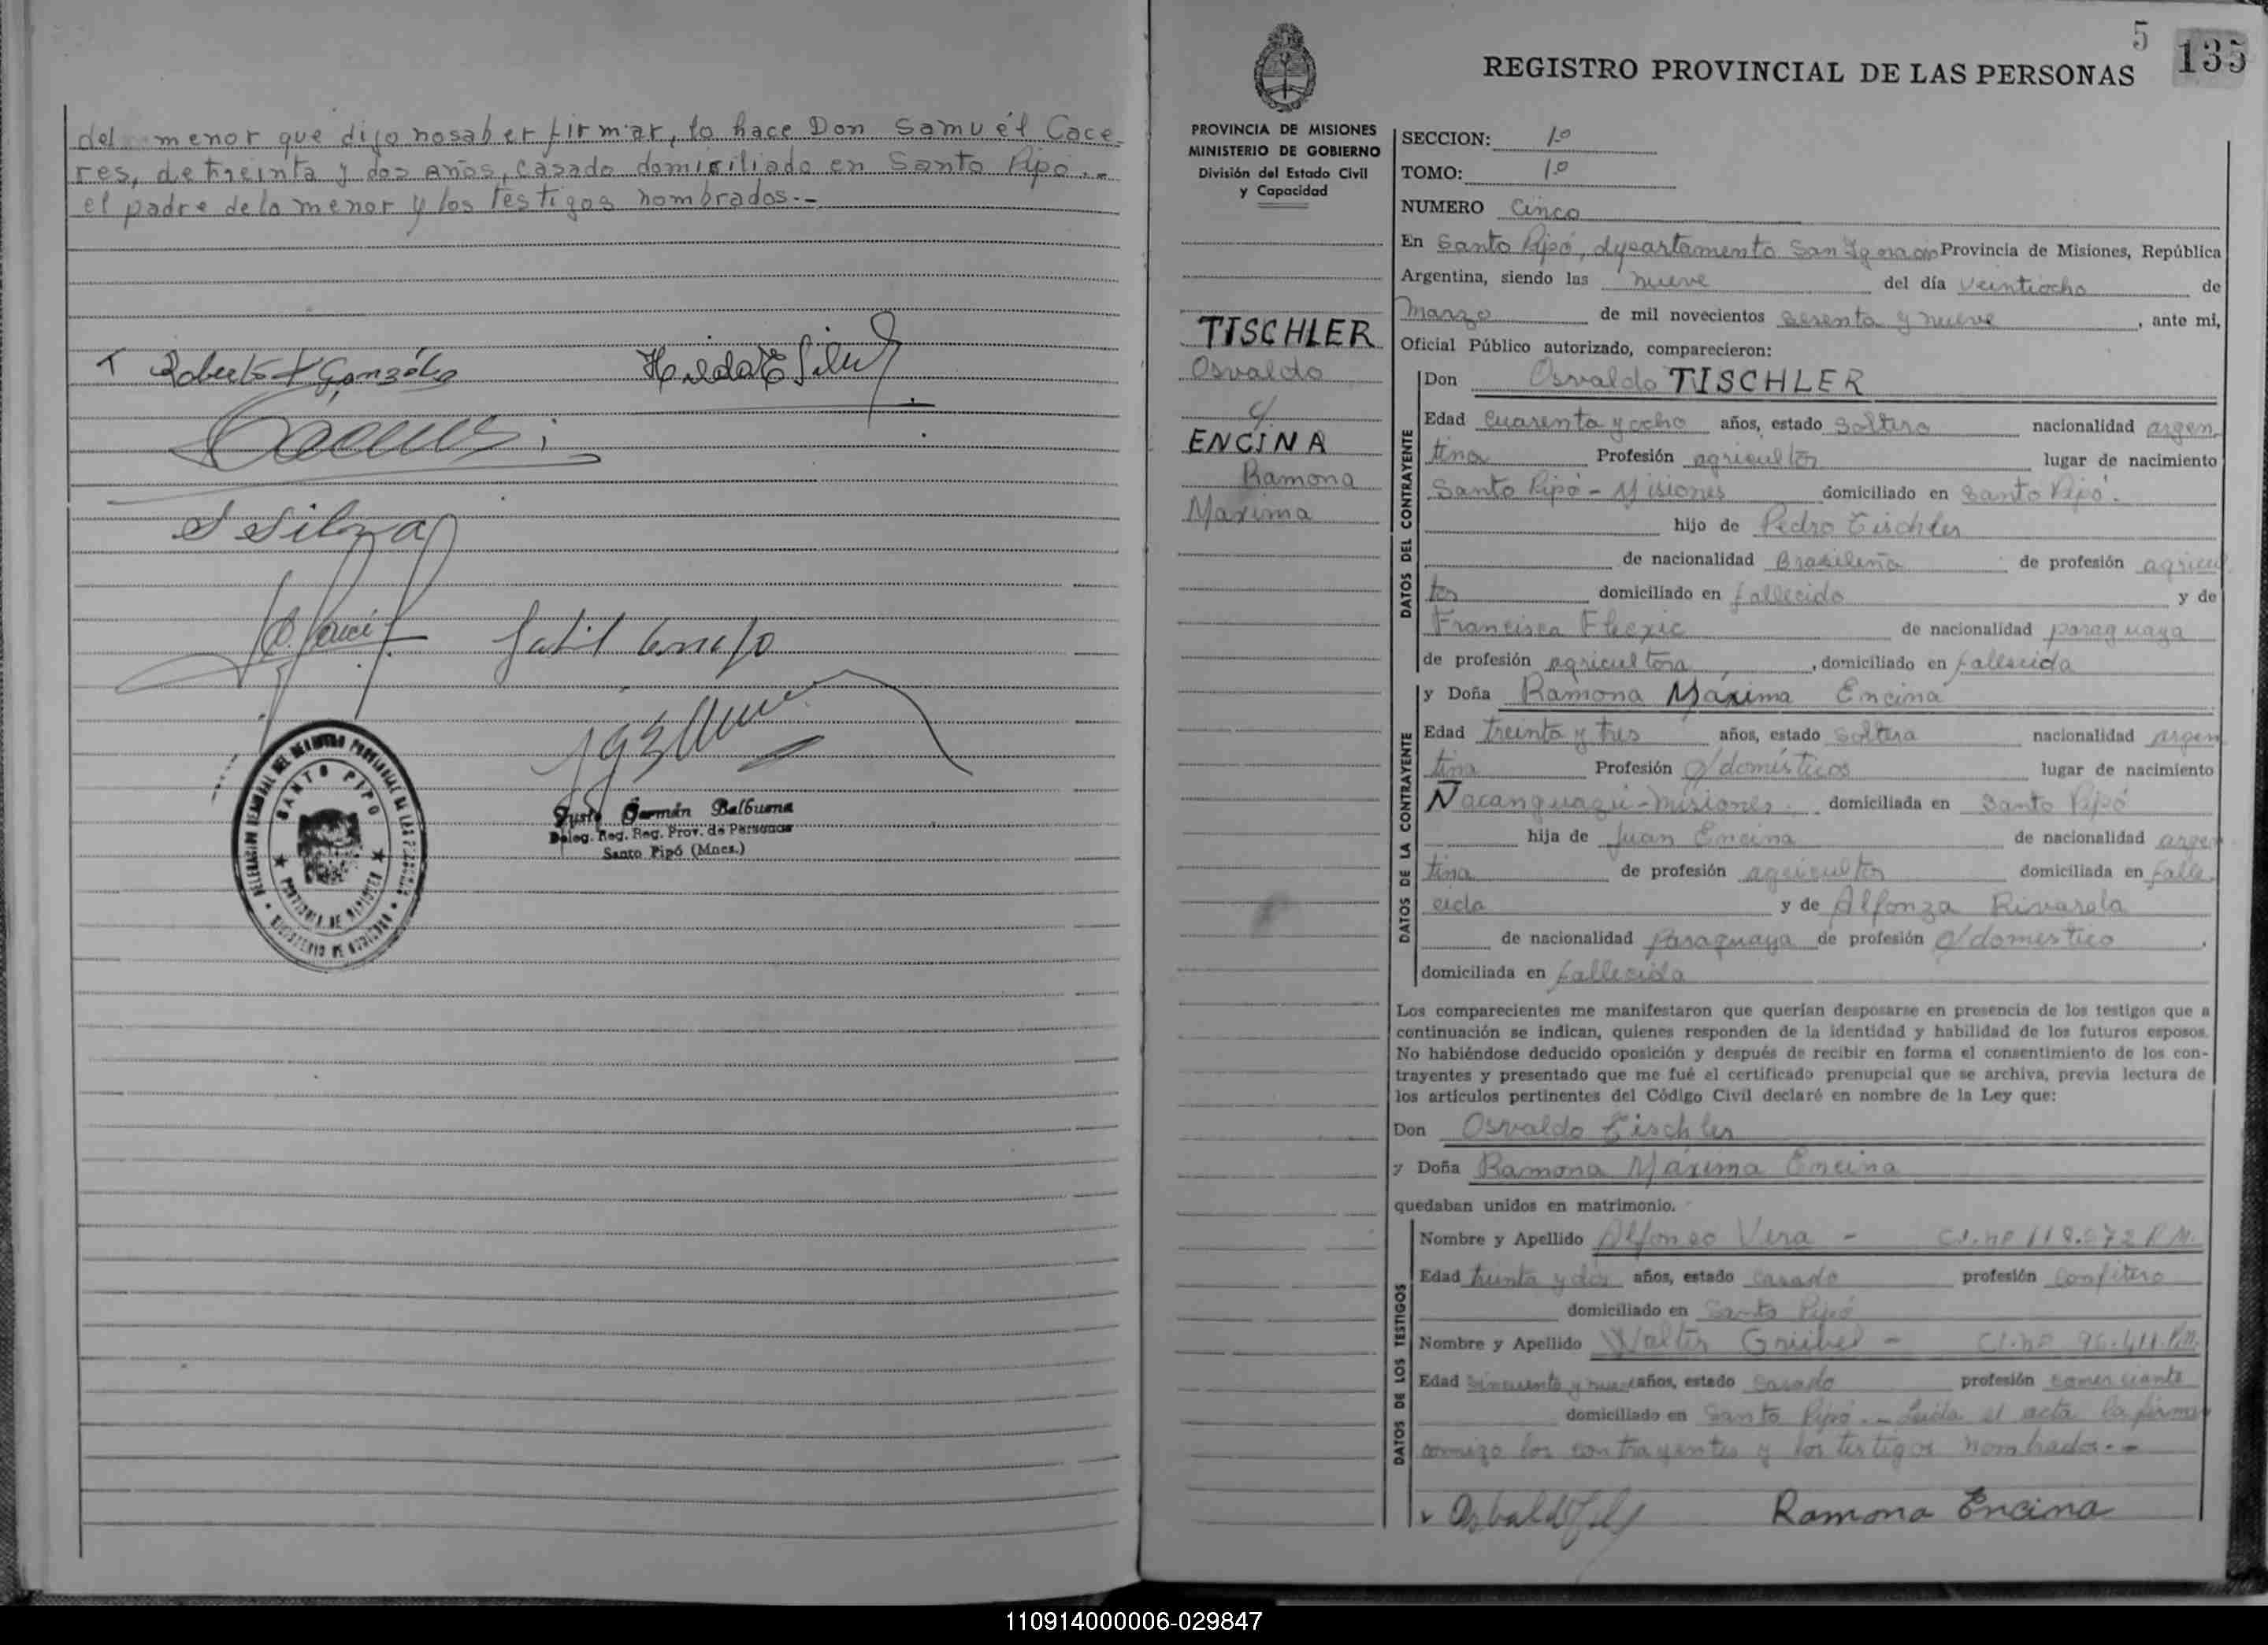 del menor que dijo no saber firmar, lo hace Don Samuél Cace-
res, de treinta y dos años, casado domisiliado en Santo Pipó.-
el padre de la menor y los testigos nombrados.-
Roberto González
S Silva
DELEGACION REGIONAL DEL REGISTRO PROVINCIAL DE LAS PERSONAS
SANTO PIPO
PROVINCIA DE MISIONES
MINISTERIO DE GOBIERNO
Justo Germán Balbuena
Deleg. Reg. Reg. Prov. de Personas
Santo Pipó (Mnes.)
5
135
REGISTRO PROVINCIAL DE LAS PERSONAS
PROVINCIA DE MISIONES
MINISTERIO DE GOBIERNO
División del Estado Civil
y Capacidad
TISCHLER
Osvaldo
c/
ENCINA
Ramona
Maxima
SECCION: 1º
TOMO: 1º
NUMERO Cinco
En Santo Pipó, departamento San Ignacio Provincia de Misiones, República
Argentina, siendo las nueve del día veintiocho de
Marzo de mil novecientos sesenta y nueve, ante mi,
Oficial Público autorizado, comparecieron:
DATOS DEL CONTRAYENTE
Don Osvaldo TISCHLER
Edad cuarenta y ocho años, estado soltero nacionalidad argen
tina Profesión agricultor lugar de nacimiento
Santo Pipó - Misiones domiciliado en Santo Pipó.
hijo de Pedro Tischler
de nacionalidad Brasileña de profesión agricul
tor domiciliado en fallecido y de
Francisca de nacionalidad paraguaya
de profesión agricultora, domiciliado en fallecida
DATOS DE LA CONTRAYENTE
y Doña Ramona Máxima Encina
Edad treinta y tres años, estado soltera nacionalidad argen
tina Profesión q/domésticos lugar de nacimiento
Ñacanguazú - Misiones. domiciliada en Santo Pipó
hija de Juan Encina de nacionalidad argen
tina de profesión agricultor domiciliada en falle
cido y de Alfonza Rivarola
de nacionalidad paraguaya de profesión q/domestico,
domiciliada en fallecida
Los comparecientes me manifestaron que querían desposarse en presencia de los testigos que a
continuación se indican, quienes responden de la identidad y habilidad de los futuros esposos.
No habiéndose deducido oposición y después de recibir en forma el consentimiento de los con-
trayentes y presentado que me fué el certificado prenupcial que se archiva, previa lectura de
los artículos pertinentes del Código Civil declaré en nombre de la Ley que:
Don Osvaldo Tischler
y Doña Ramona Máxima Encina
quedaban unidos en matrimonio.
DATOS DE LOS TESTIGOS
Nombre y Apellido Alfonso Vera - C.I. nº
Edad treinta y dos años, estado casado profesión Confitero
domiciliado en Santo Pipó
Nombre y Apellido Walter Grübel - C.I. nº
Edad sincuenta y nueve años, estado casado profesión comerciante
domiciliado en Santo Pipó.- Leída el acta la firman
conmigo los contrayentes y los testigos nombrados.-
Ramona Encina
110914000006-029847